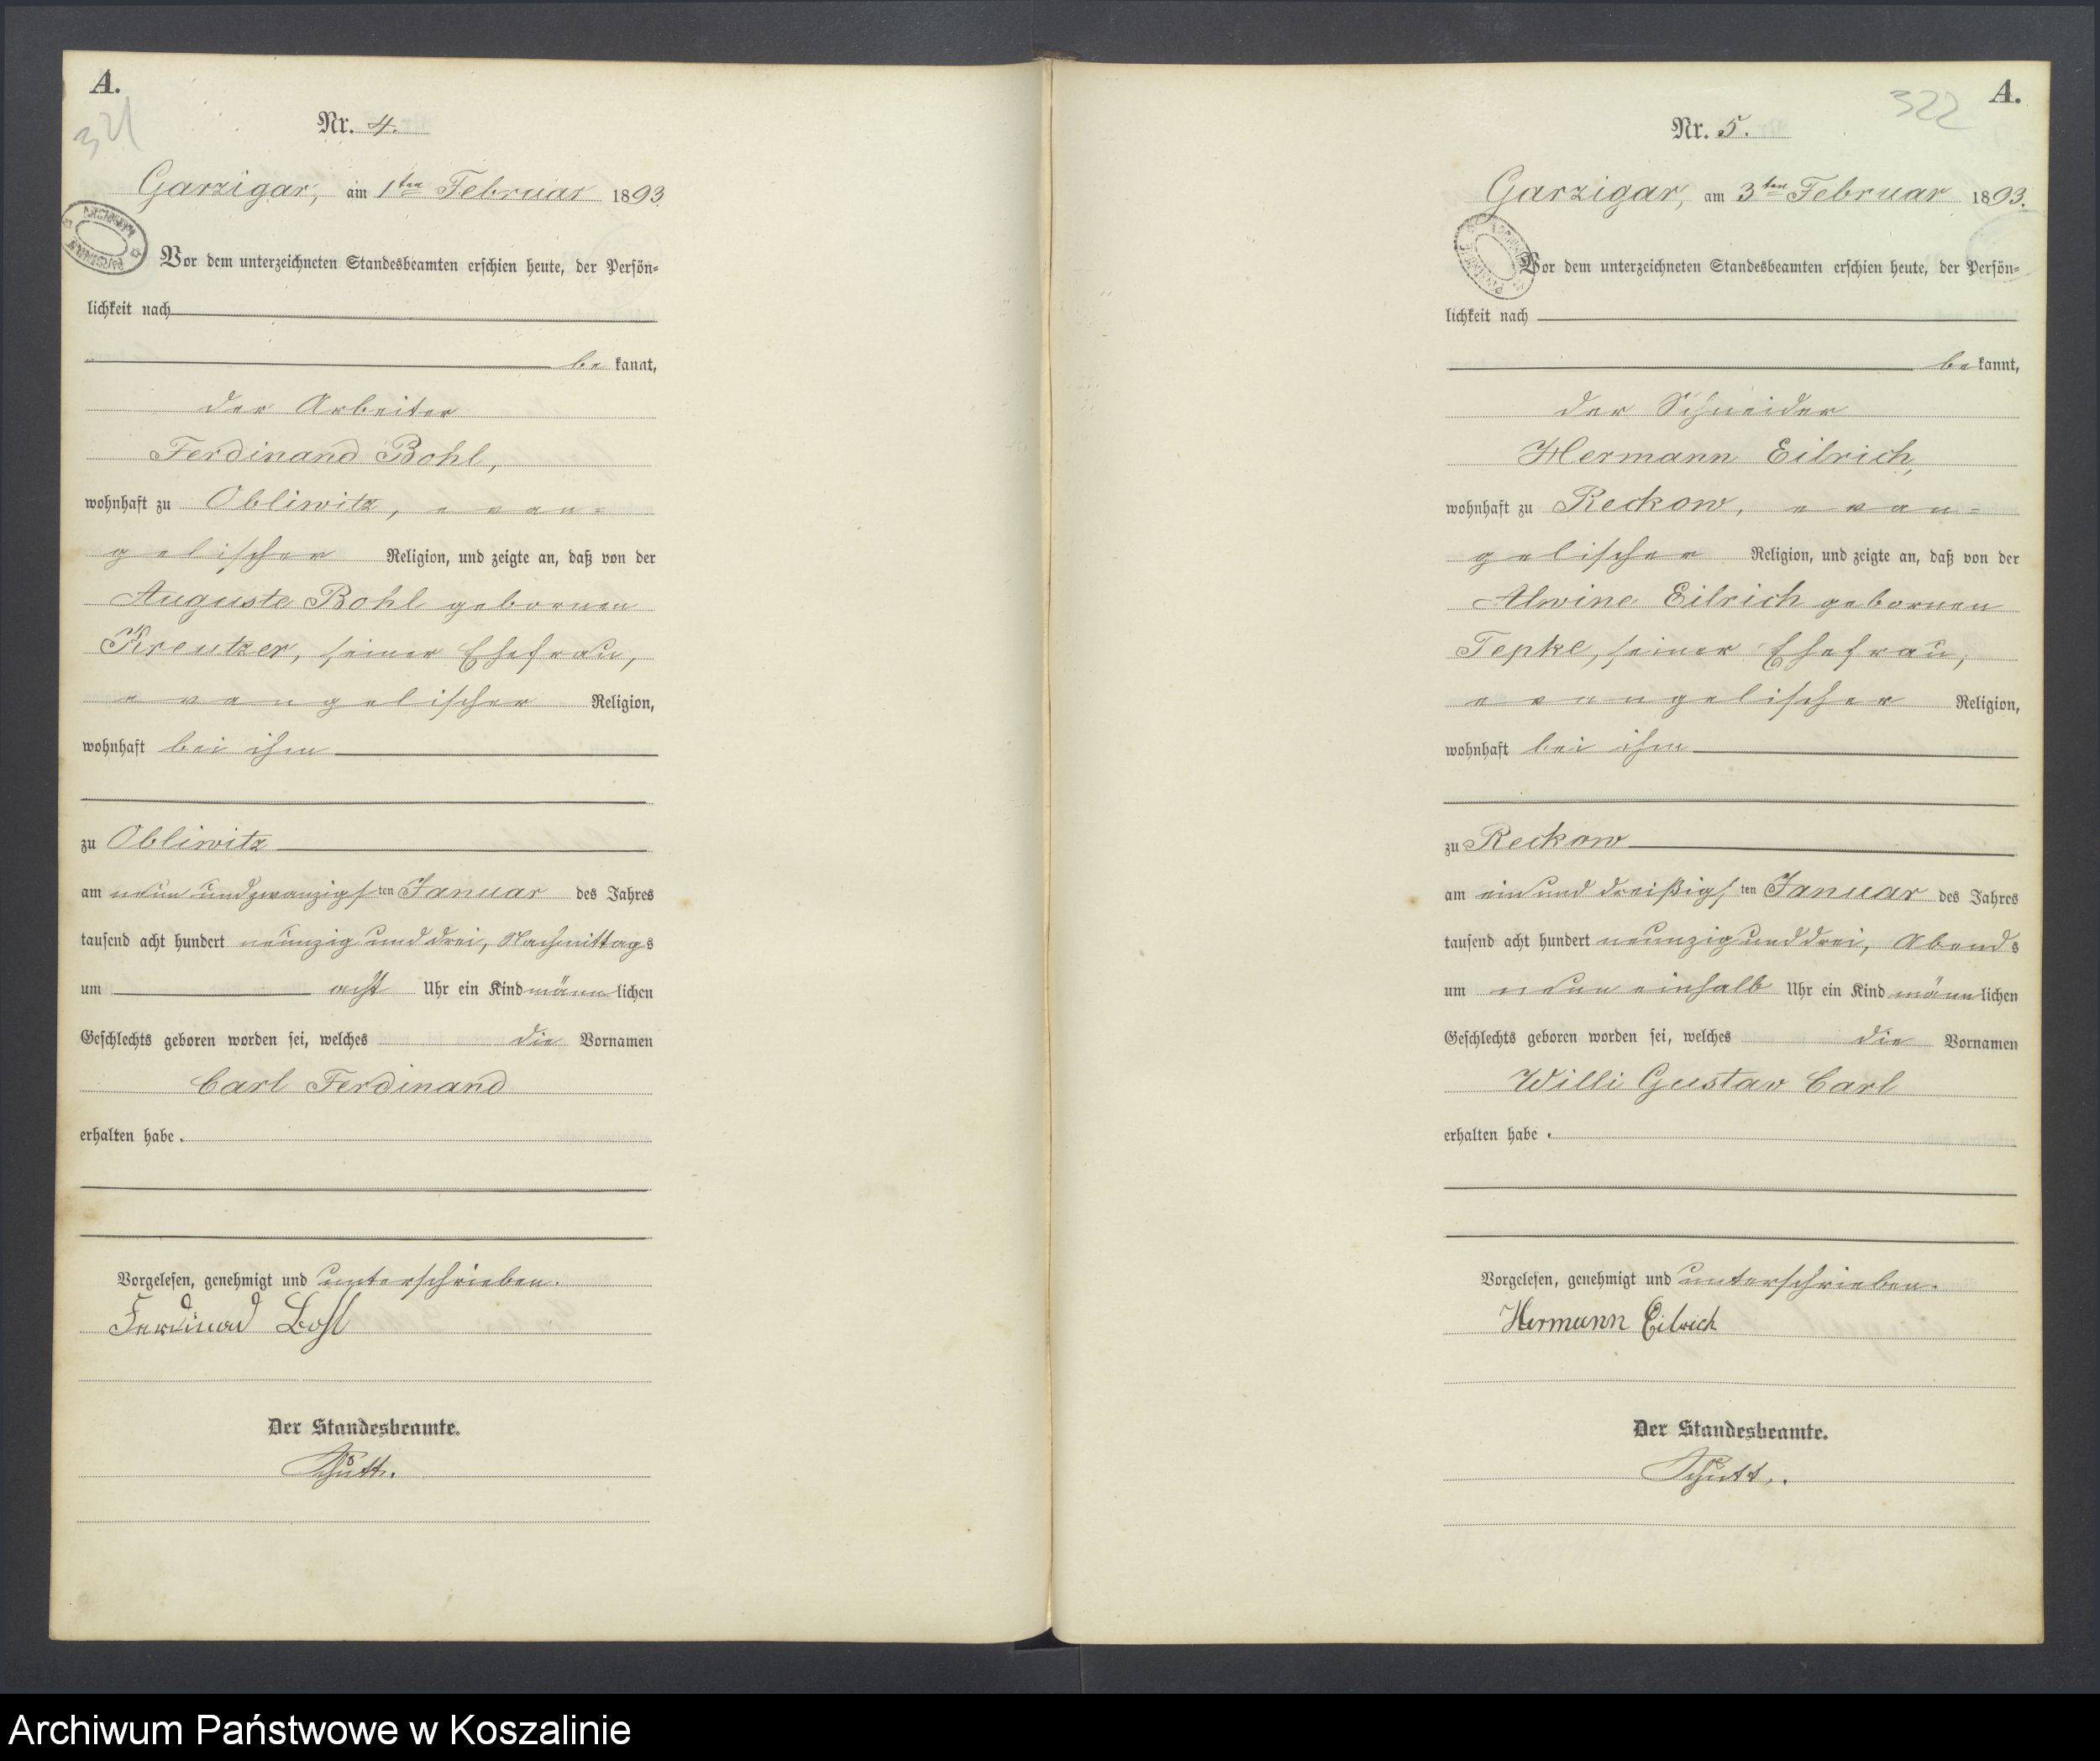 A.
321
Nr. 4.
Garzigar, am 1ten Februar 1893.
Vor dem unterzeichneten Standesbeamten erschien heute, der Persön=
lichkeit nach
be kannt,
der Arbeiter
Ferdinand Bohl,
wohnhaft zu Obliwitz, evan=
gelischer Religion, und zeigte an, daß von der
Auguste Bohl geborenen
Kreutzer, seiner Ehefrau,
evangelischer Religion,
wohnhaft bei ihm
zu Obliwitz
am neun und zwanzigsten Januar des Jahres
tausend acht hundert neunzig und drei, Nachmittags
um acht Uhr ein Kind männlichen
Geschlechts geboren worden sei, welches die Vornamen
Carl Ferdinand
erhalten habe.
Vorgelesen, genehmigt und unterschrieben.
Ferdinand Bohl
Der Standesbeamte.
A.
322
Nr. 5.
Garzigar, am 3ten Februar 1893.
Vor dem unterzeichneten Standesbeamten erschien heute, der Persön=
lichkeit nach
be kannt,
der Schneider
Hermann Eilrich,
wohnhaft zu Reckow, evan=
gelischer Religion, und zeigte an, daß von der
Alwine Eilrich gebornen
Tepke, seiner Ehefrau,
evangelischer Religion,
wohnhaft bei ihm
zu Reckow
am ein und dreißigsten Januar des Jahres
tausend acht hundert neunzig und drei, Abends
um neun einhalb Uhr ein Kind männlichen
Geschlechts geboren worden sei, welches die Vornamen
Willi Gustav Carl
erhalten habe.
Vorgelesen, genehmigt und unterschrieben.
Hermann Eilrich
Der Standesbeamte.
Archiwum Państwowe w Koszalinie